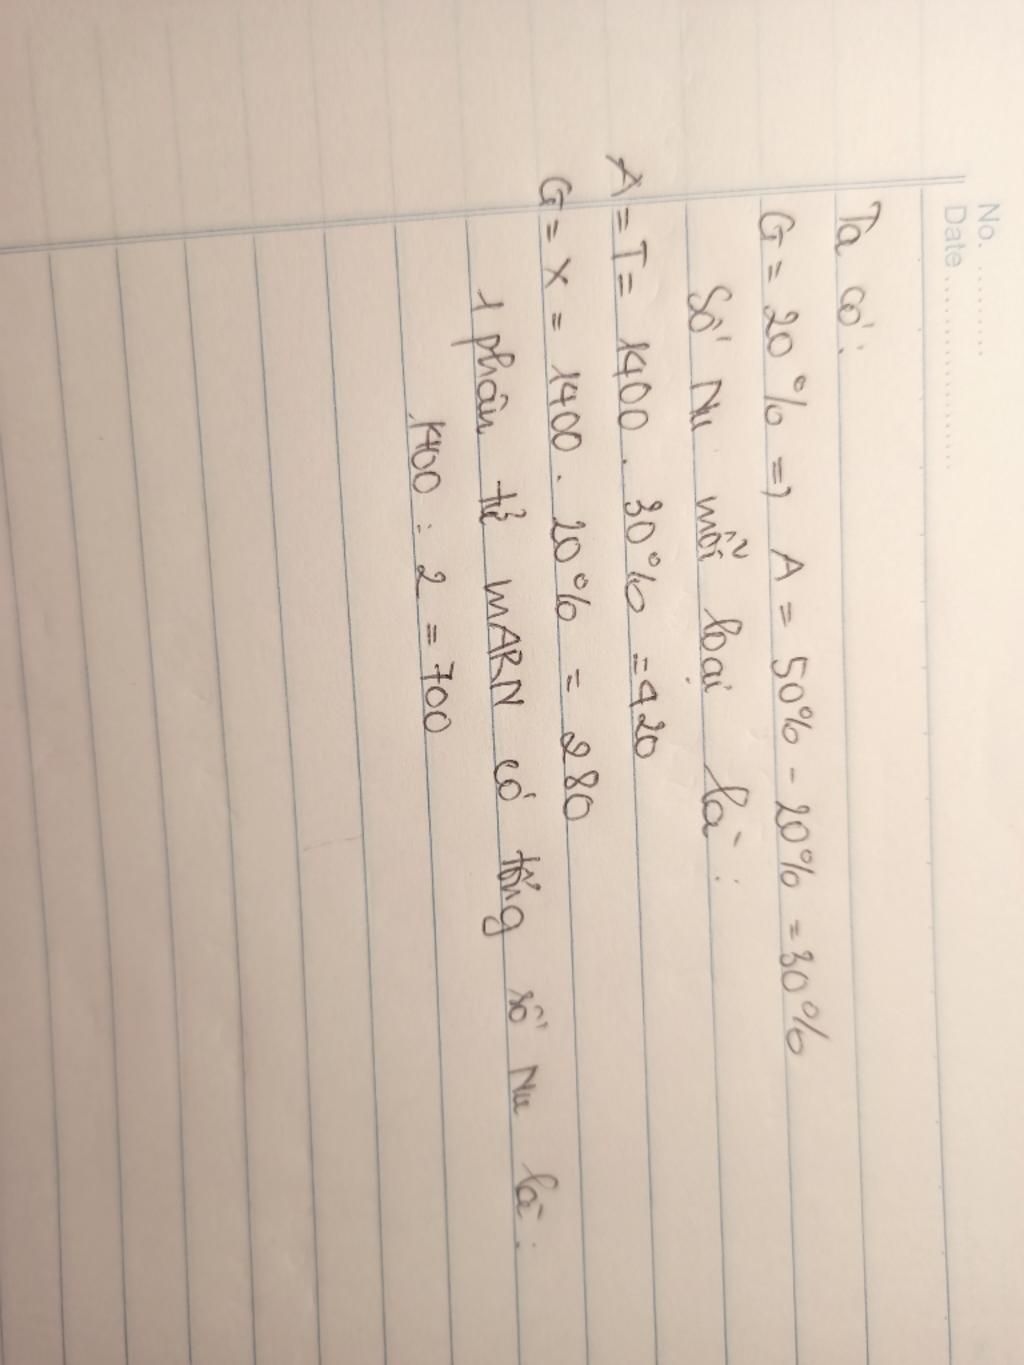 No. .........
Date .....................
Ta có:
G = 20% => A = 50% - 20% = 30%
Số Nu mỗi loại là:
A = T = 1400 . 30% = 420
G = X = 1400 . 20% = 280
1 phân tử mARN có tổng số Nu là:
1400 : 2 = 700